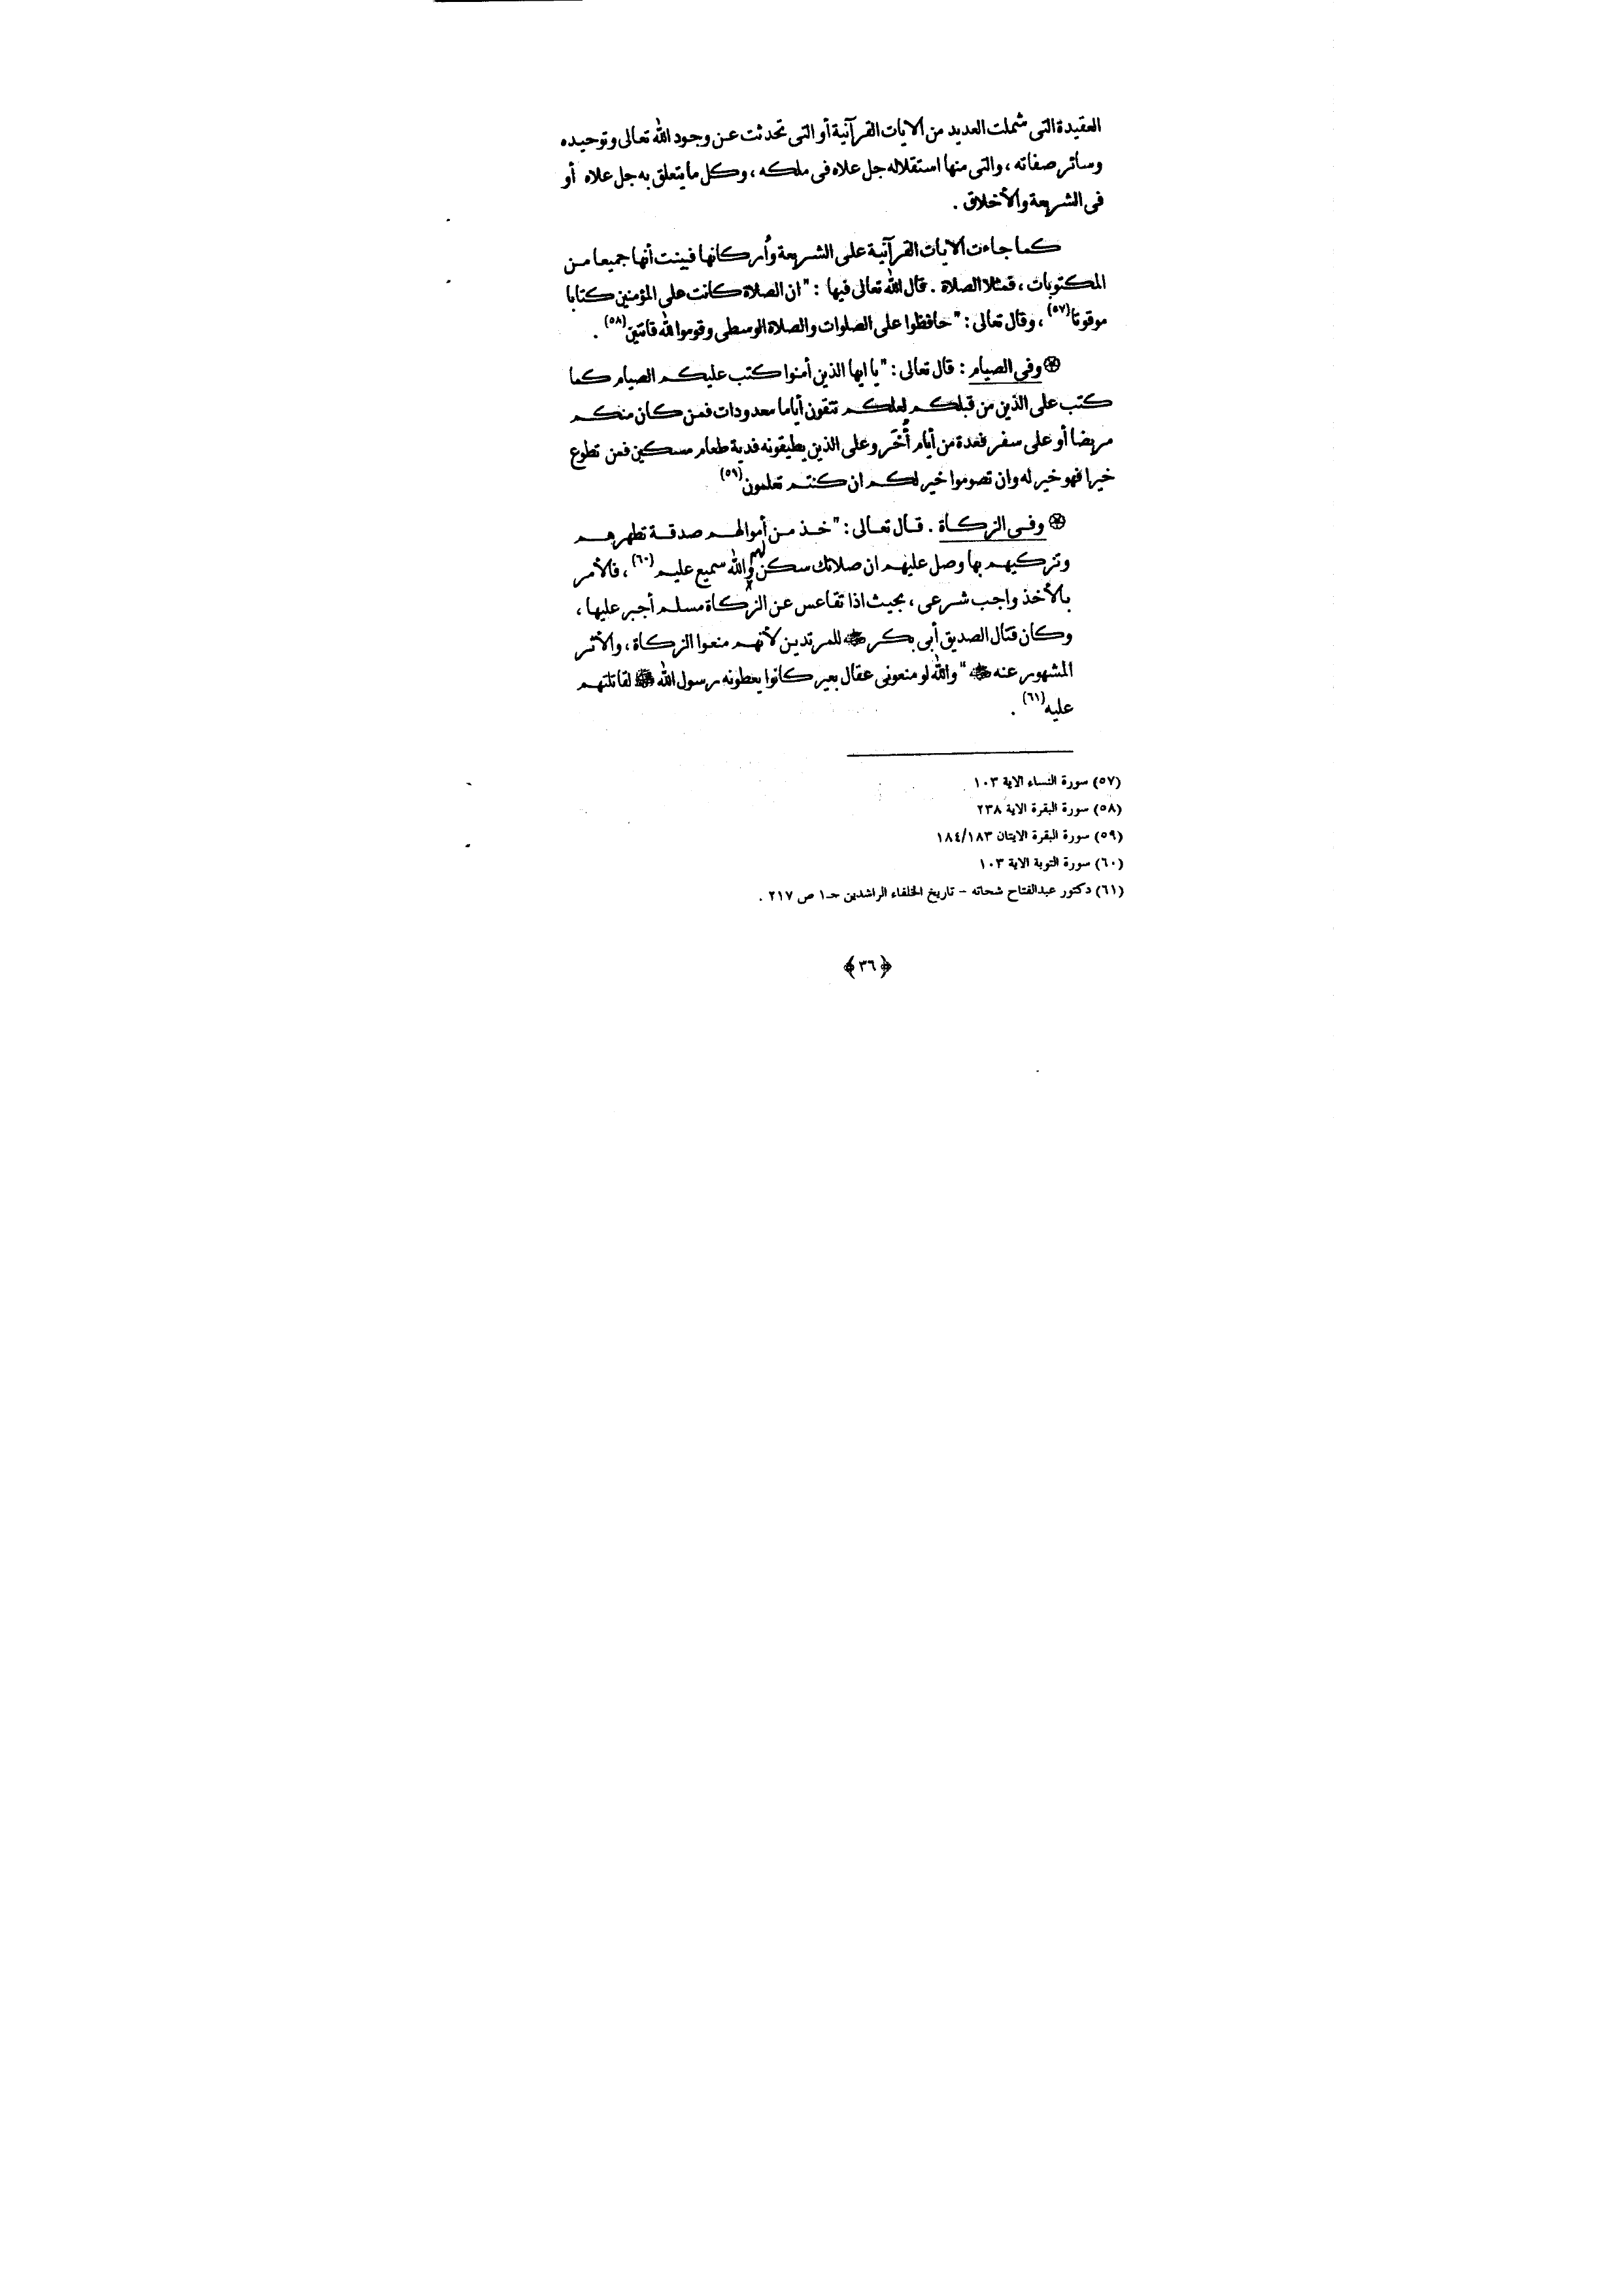 العقيدة التى شملت العديد من الايات القرآنية أو التى تحدثت عن وجود الله تعالى وتوحيده
وسائر صفاته ، والتى منها استقلاله جل علاه فى ملكه ، وكل ما يتعلق به جل علاه أو
فى الشريعة والأخلاق .
كما جاءت الايات القرآنية على الشريعة وأركانها فبينت أنها جميعا من
المكتوبات ، فمثلا الصلاة . قال الله تعالى فيها : " ان الصلاة كانت على المؤمنين كتابا
موقوتا (٥٧) ، وقال تعالى : " حافظوا على الصلوات والصلاة الوسطى وقوموا لله قانتين (٥٨) .
وفى الصيام : قال تعالى : " يا ايها الذين أمنوا كتب عليكم الصيام كما
كتب على الذين من قبلكم لعلكم تتقون أياما معدودات فمن كان منكم
مريضا أو على سفر فعدة من أيام أُخَر وعلى الذين يطيقونه فدية طعام مسكين فمن تطوع
خيرا فهو خير له وان تصوموا خير لكم ان كنتم تعلمون (٥٩)
وفى الزكاة . قال تعالى : " خذ من أموالهم صدقة تطهرهم
وتزكيهم بها وصل عليهم ان صلاتك سكن لهم والله سميع عليم (٦٠) ، فالأمر
بالأخذ واجب شرعى ، بحيث اذا تقاعس عن الزكاة مسلم أجبر عليها ،
وكان قتال الصديق أبى بكر للمرتدين لأنهم منعوا الزكاة ، والأثر
المشهور عنه " والله لو منعونى عقال بعير كانوا يعطونه رسول الله ﷺ لقاتلتهم
عليه (٦١) .
(٥٧) سورة النساء الاية ١٠٣
(٥٨) سورة البقرة الاية ٢٣٨
(٥٩) سورة البقرة الايتان ١٨٤/١٨٣
(٦٠) سورة التوبة الاية ١٠٣
(٦١) دكتور عبدالفتاح شحاته - تاريخ الخلفاء الراشدين حـ١ ص ٢١٧ .
﴿٣٦﴾